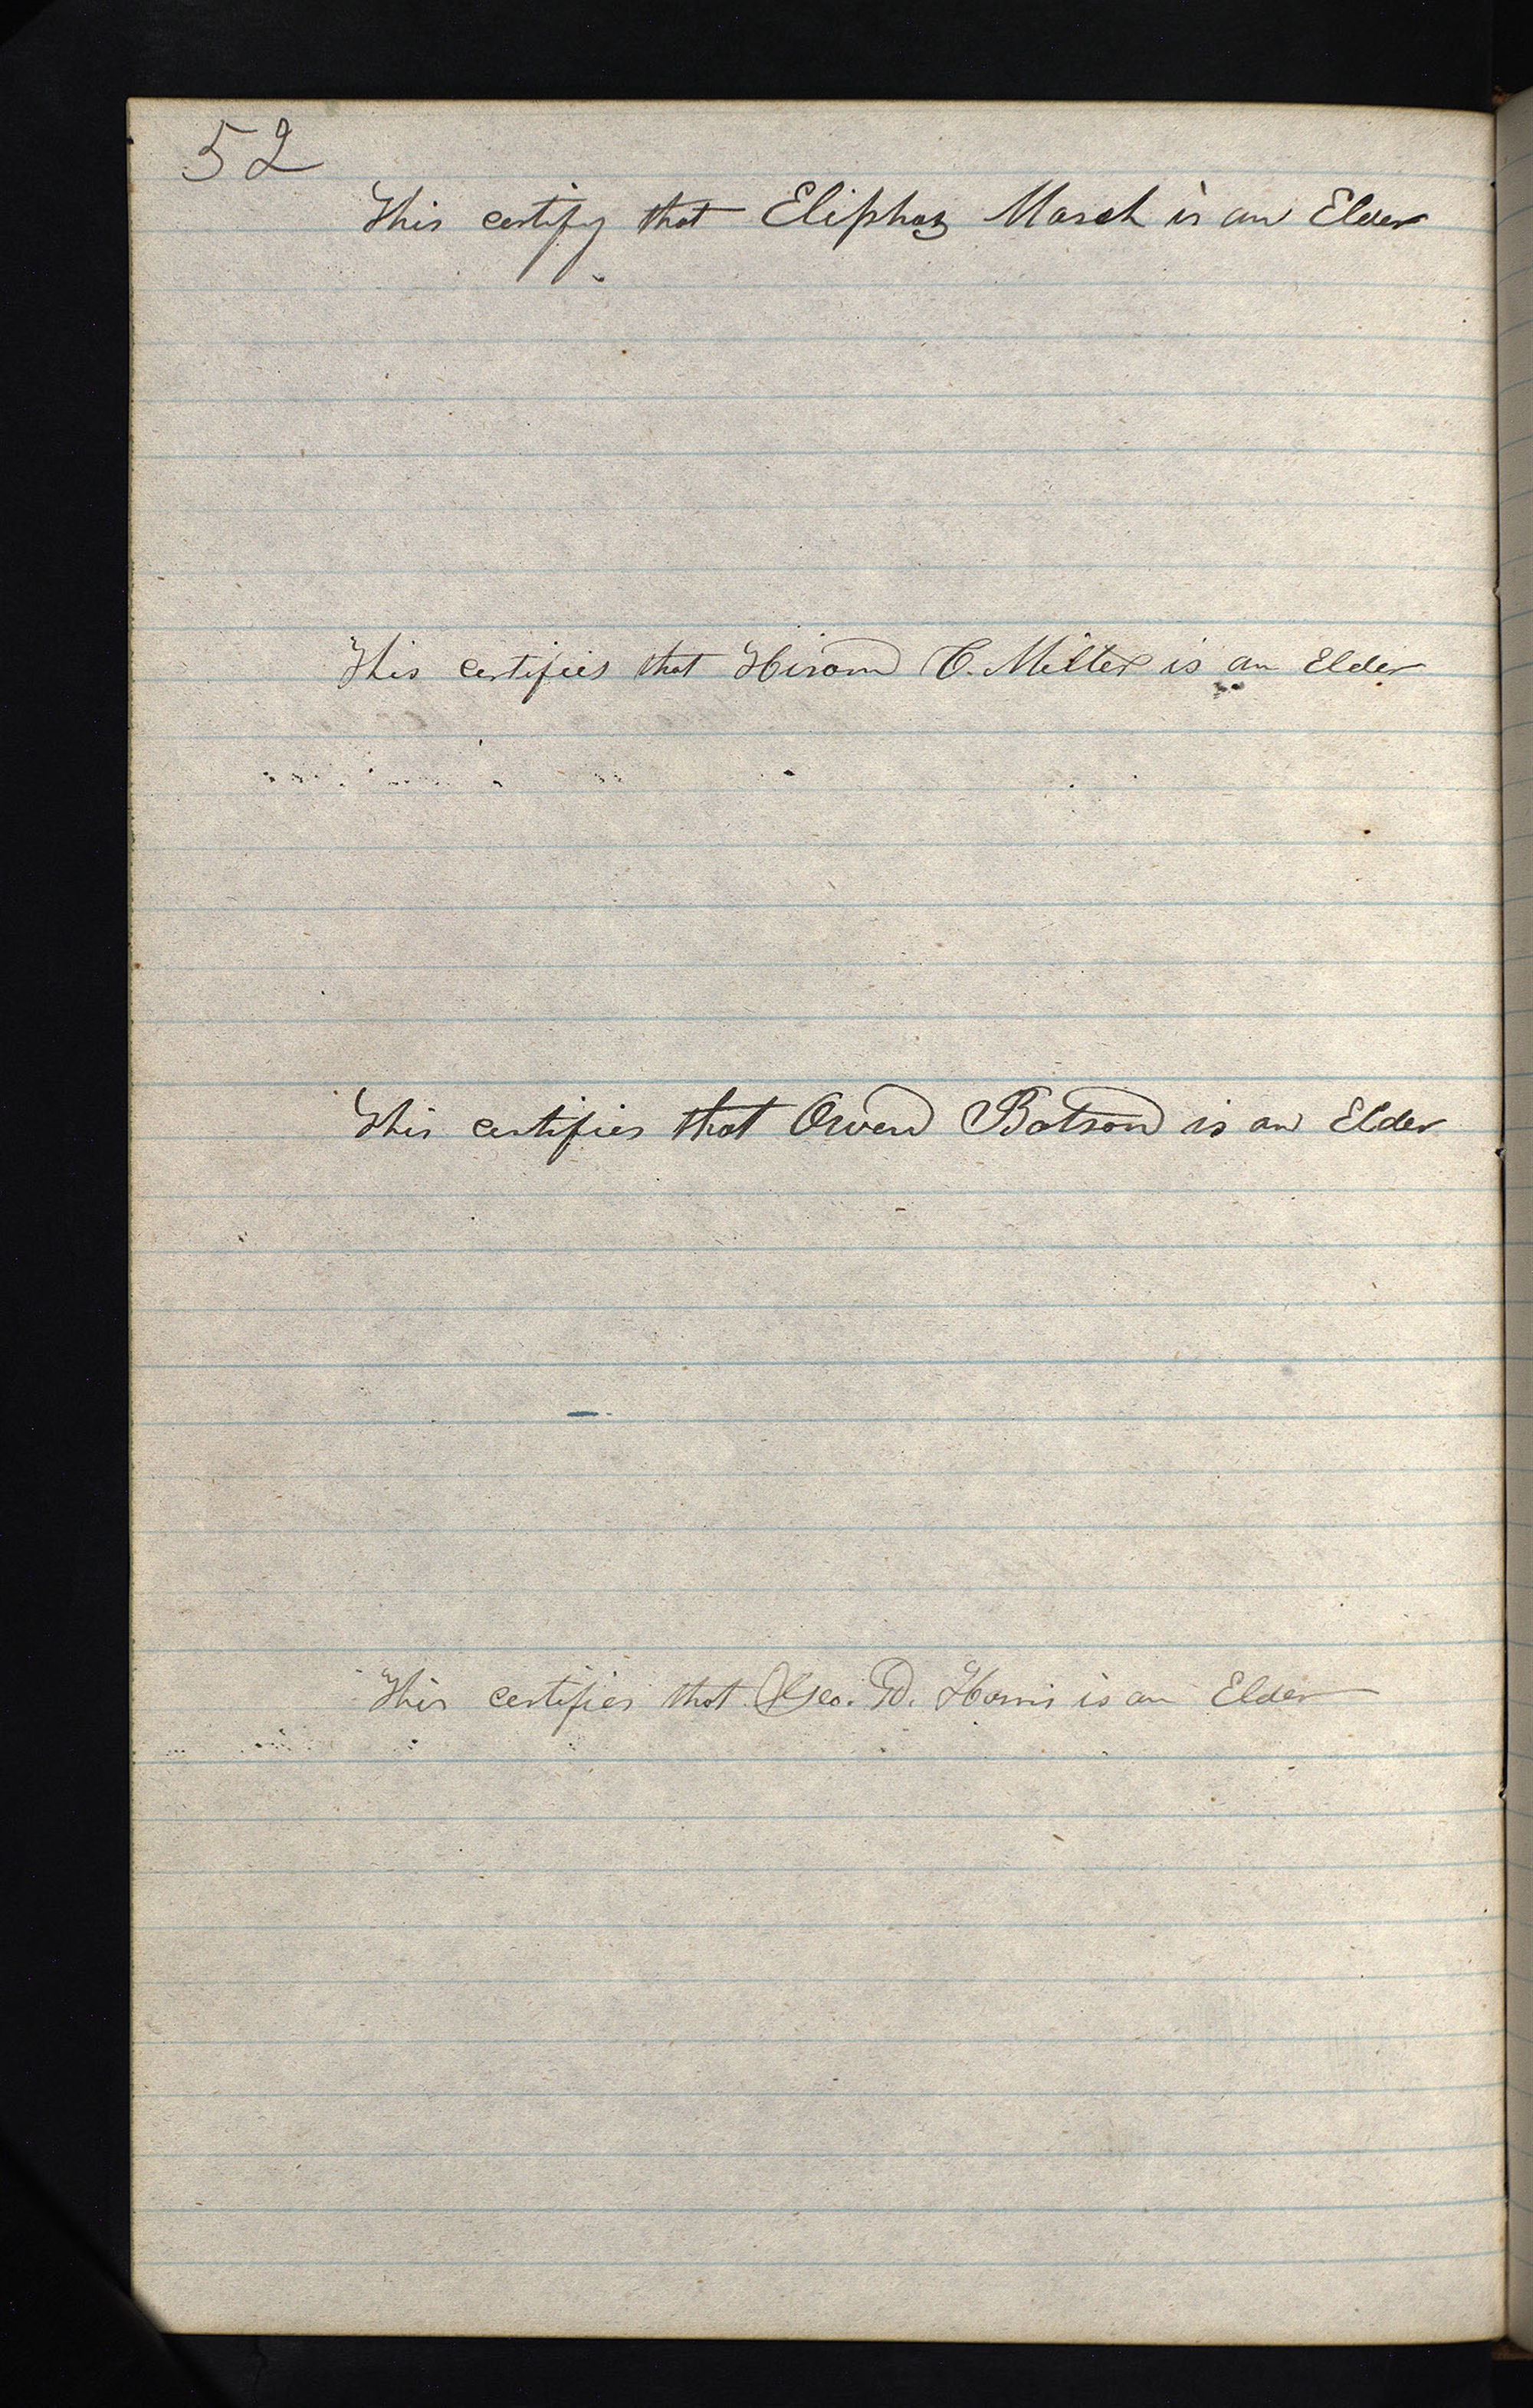 52
This certify that Eliphaz Marsh is an Elder
This certifies that Hiram C. Miller is an Elder
This certifies that Owen Batson is an Elder
This certifies that Geo. D. Harris is an Elder